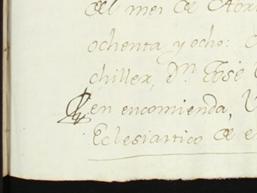 del mes de Abril
ochenta, y ocho:
chiller, Dn. José
en encomienda,
Eclesiastico de e